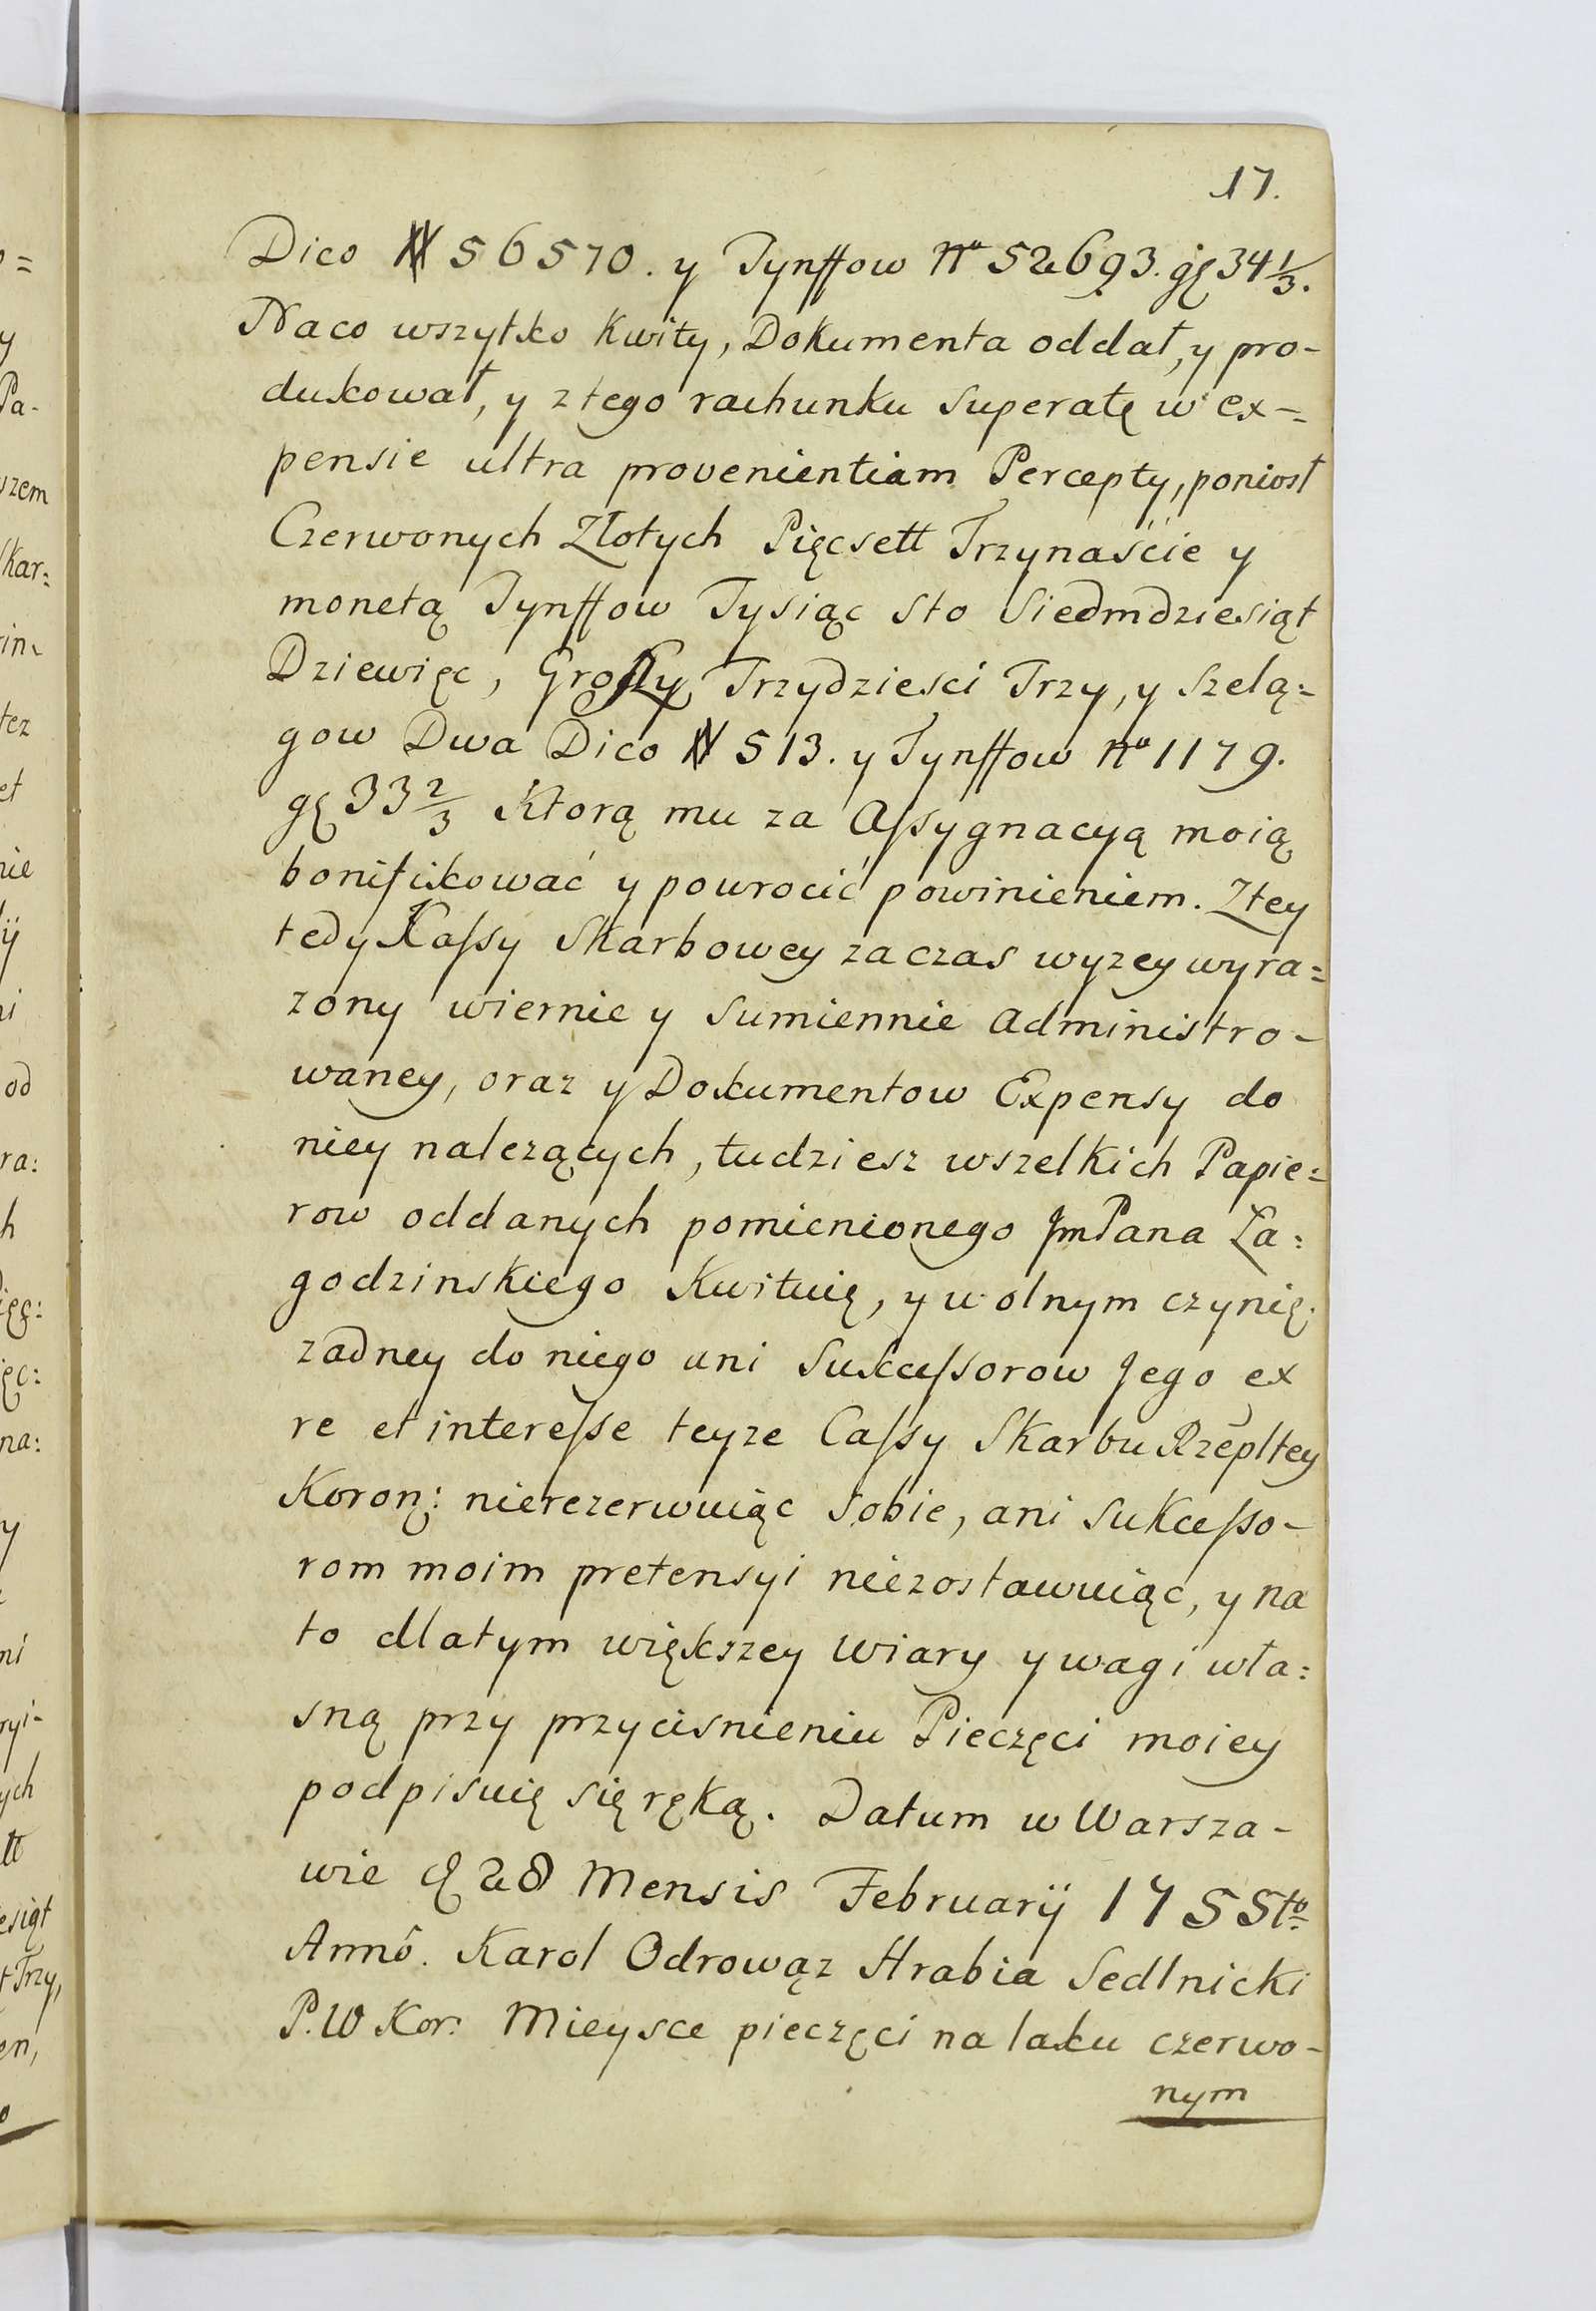 17.
Dico # 56570. y Tynffow Nº 52693. gę 34 1/3.
Naco wszytko Kwity, Dokumenta oddał, y pro-
dukował, y z tego rachunku superatę w ex-=
pensie ultra provenientiam Percepty, poniosł
Czerwonych Złotych Pięcsett Trzynaście y
monetą Tynffow Tysiąc sto siedmdziesiąt
Dziewięc, Groszy Trzydziesci Trzy, y szelą:
gow Dwa Dico # 513. y Tynffow Nº 1179.
gę 33 2/3 Ktorą mu za Assygnacyą moią
bonifikować y powrocić powinieniem. Ztey
tedy Kassy Skarbowey zaczas wyzey wyra=
zony wiernie y sumiennie administro-
waney, oraz y Dokumentow Expensy do
niey nalezących, tudziesz wszelkich Papie=
row oddanych pomienionego JmPana Za:
godzinskiego Kwituię, y wolnym czynię.
zadney do niego ani Sukcessorow Jego ex
re et interesse teyze Cassy Skarbu Rzepltey
Koron: nierezerwuiąc sobie, ani sukcesso-
rom moim pretensyi niezostawuiąc, y na
to dlatym większey wiary y wagi wła:
sną przy przycisnieniu Pieczęci moiey
podpisuię się ręką. Datum w Warsza-
wie d 28 Mensis Februarij 1755to
Annô. Karol Odrowąz Hrabia Sedlnicki
P. W Kor: Mieysce pieczęci na laku czerwo-
nym